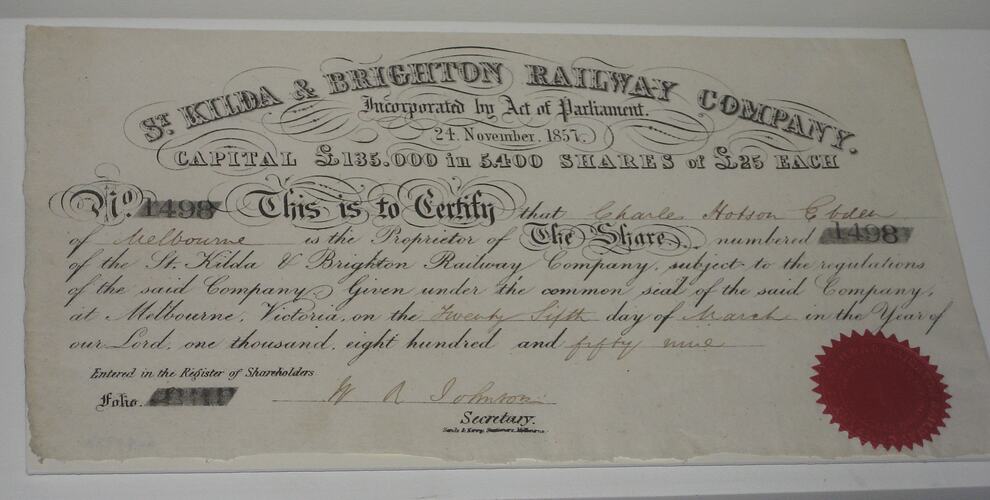 ST. KILDA & BRIGHTON RAILWAY COMPANY.
Incorporated by Act of Parliament.
24. November. 1857.
CAPITAL £135.000 in 5400 SHARES of £25 EACH
No. 1498 This is to Certify that Charles Hotson Ebden
of Melbourne is the Proprietor of The Share numbered 1498
of the St. Kilda & Brighton Railway Company, subject to the regulations
of the said Company. Given under the common seal of the said Company,
at Melbourne, Victoria, on the Twenty Fifth day of March in the Year of
our Lord, one thousand, eight hundred and fifty nine
Entered in the Register of Shareholders
Folio.
W R Johnson
Secretary.
Stationers, Melbourne.